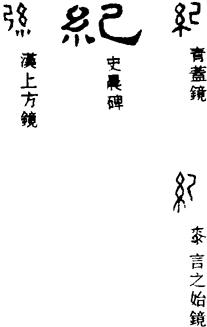 紀
青蓋鏡
紀
桼言之始鏡
紀
史晨碑
紀
漢上方鏡